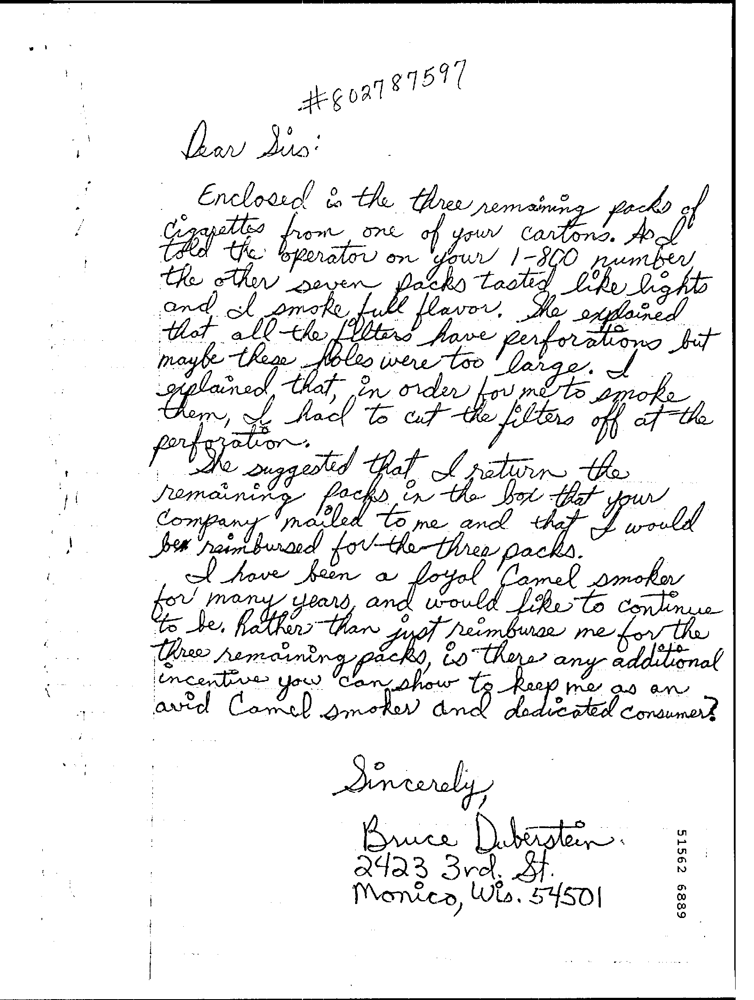 #802787597
Dear Sirs:
Enclosed is the three remaining packs of
cigarettes from one of your cartons. As I
told the operator on your 1-800 number,
the other seven packs tasted like lights
and I smoke full flavor. She explained
that all the filters have perforations but
maybe these holes were too large. I
explained that, in order for me to smoke
them, I had to cut the filters off at the
perforation.
She suggested that I return the
remaining packs in the box that your
company mailed to me and that I would
be reimbursed for the three packs.
I have been a loyal Camel smoker
for many years, and would like to continue
to be. Rather than just reimburse me for the
three remaining packs, is there any additional
incentive you can show to keep me as an
avid Camel smoker and dedicated consumer?
Sincerely,
Bruce Duberstein
2423 3rd. St.
Monico, Wis. 54501
51562 6889